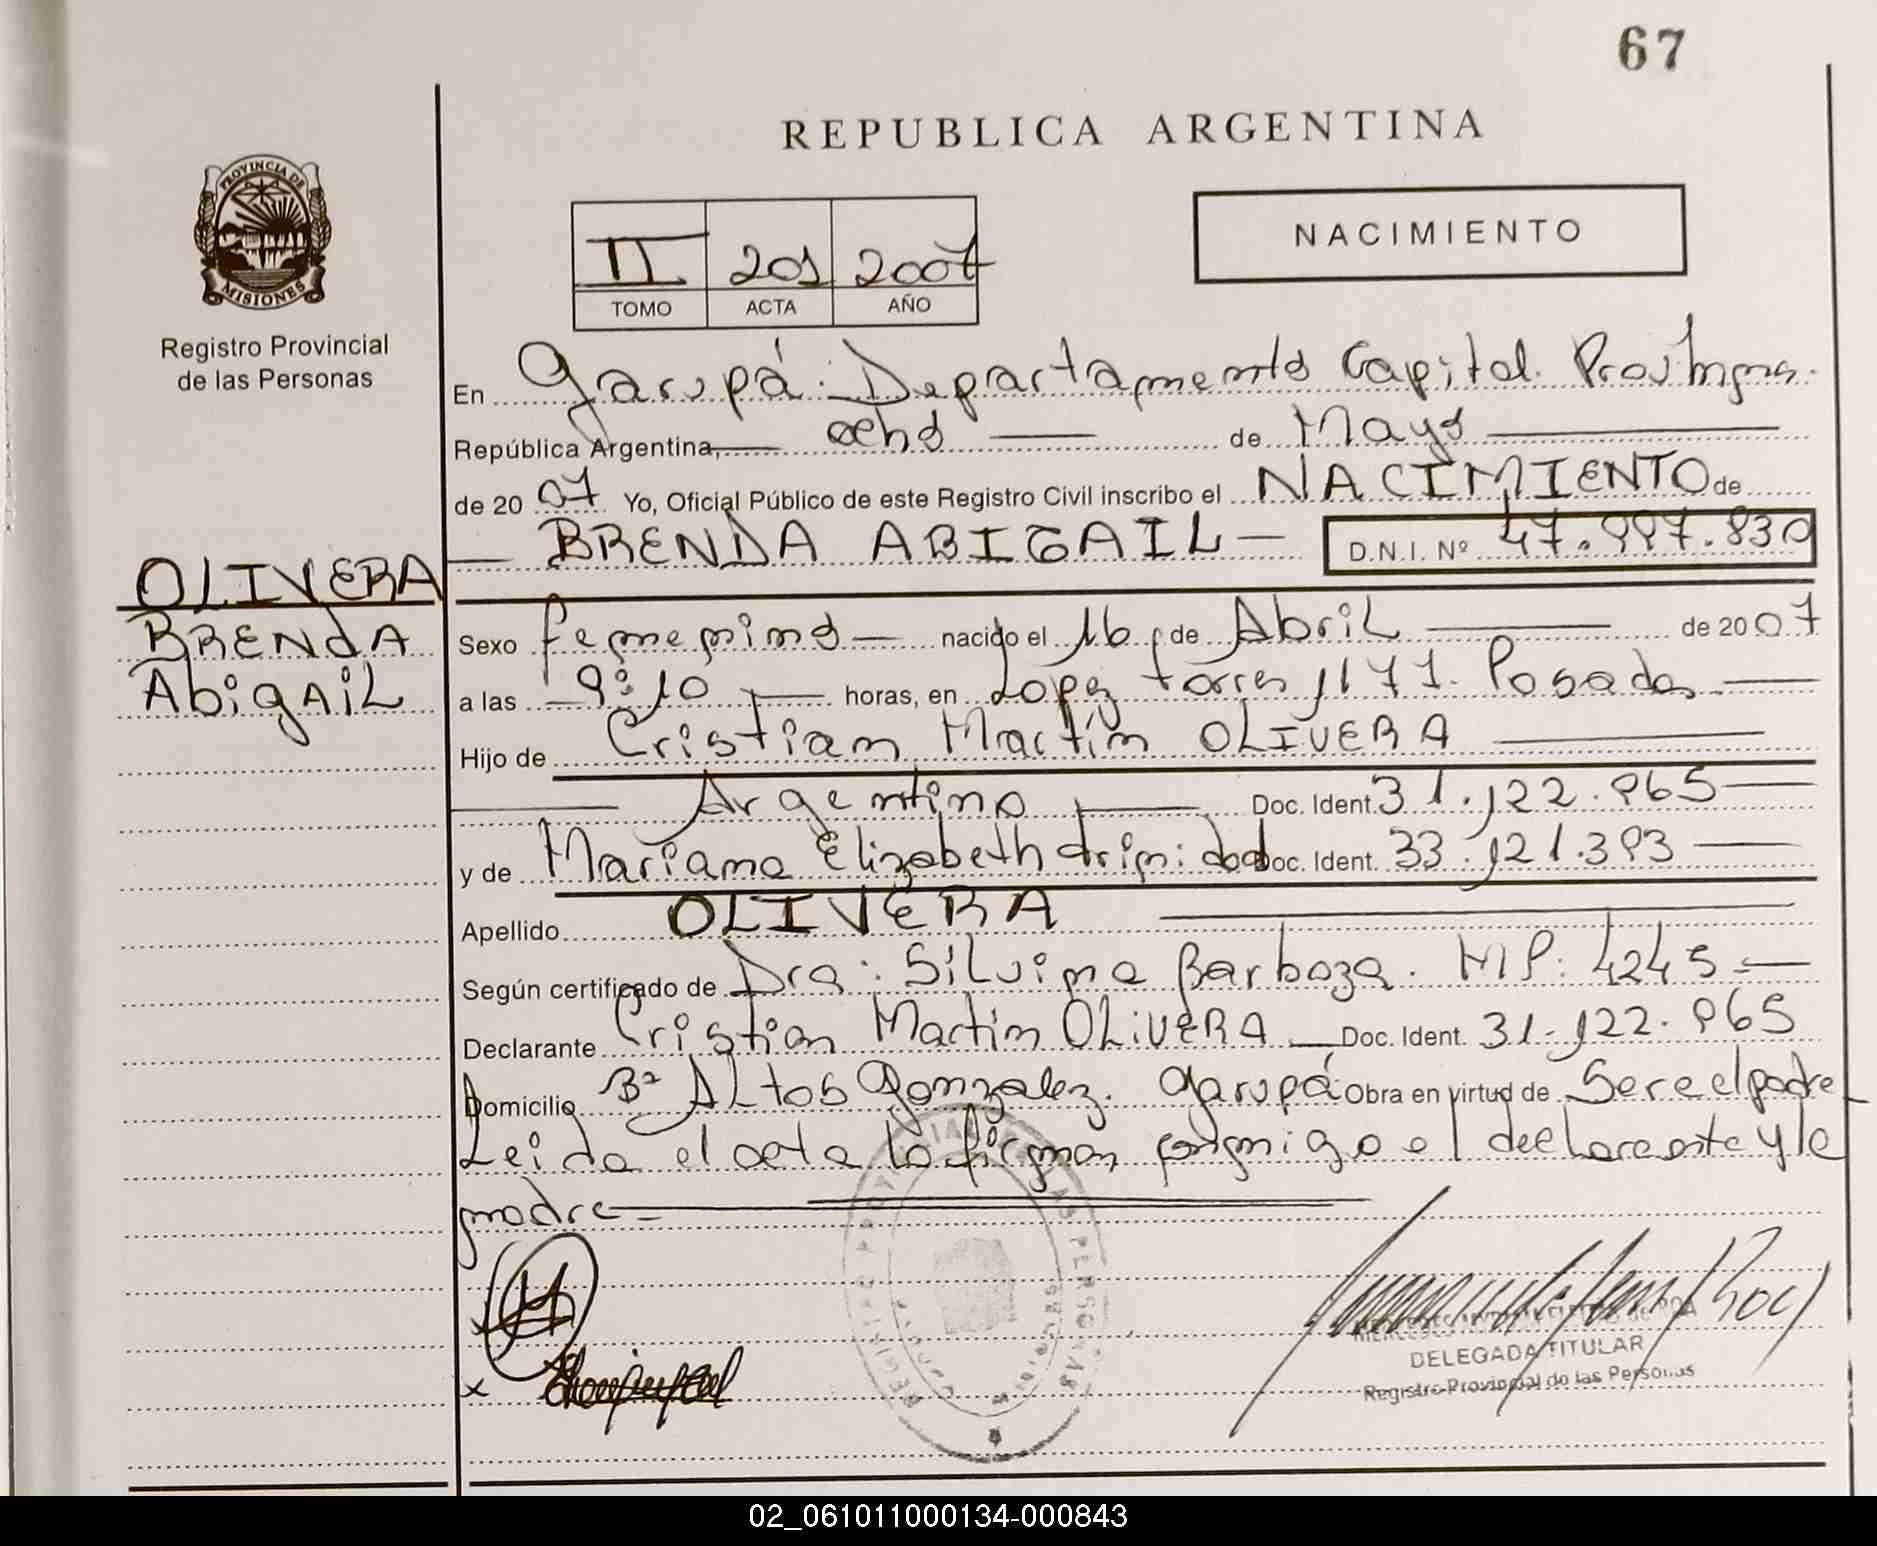 67
REPUBLICA ARGENTINA
PROVINCIA DE
MISIONES
Registro Provincial
de las Personas
NACIMIENTO
II 201 2007
TOMO ACTA AÑO
En Garupá. Departamento Capital. Prov.
República Argentina, ocho de Mayo
de 20 07 Yo, Oficial Público de este Registro Civil inscribo el NACIMIENTO de
BRENDA ABIGAIL D.N.I. Nº 47.997.830
OLIVERA
BRENDA
AbigAiL
Sexo femenino nacido el 16 de Abril de 20 07
a las 9:10 horas, en Lopez torres 1171. Posadas
Hijo de Cristian Martín OLIVERA
Argentino Doc. Ident. 31.122.965
y de Mariana Elizabeth trinidad Doc. Ident. 33.121.393
Apellido OLIVERA
Según certificado de Dra: Silvina Barboza. MP: 4245
Declarante Cristian Martin OLiVERA Doc. Ident. 31.122.965
Domicilio Bº ALtos Gonzalez. Garupá Obra en virtud de Ser el padre
Leida el acta la firman conmigo el declarante y la
madre
DELEGADA TITULAR
Registro Provincial de las Personas
02_061011000134-000843